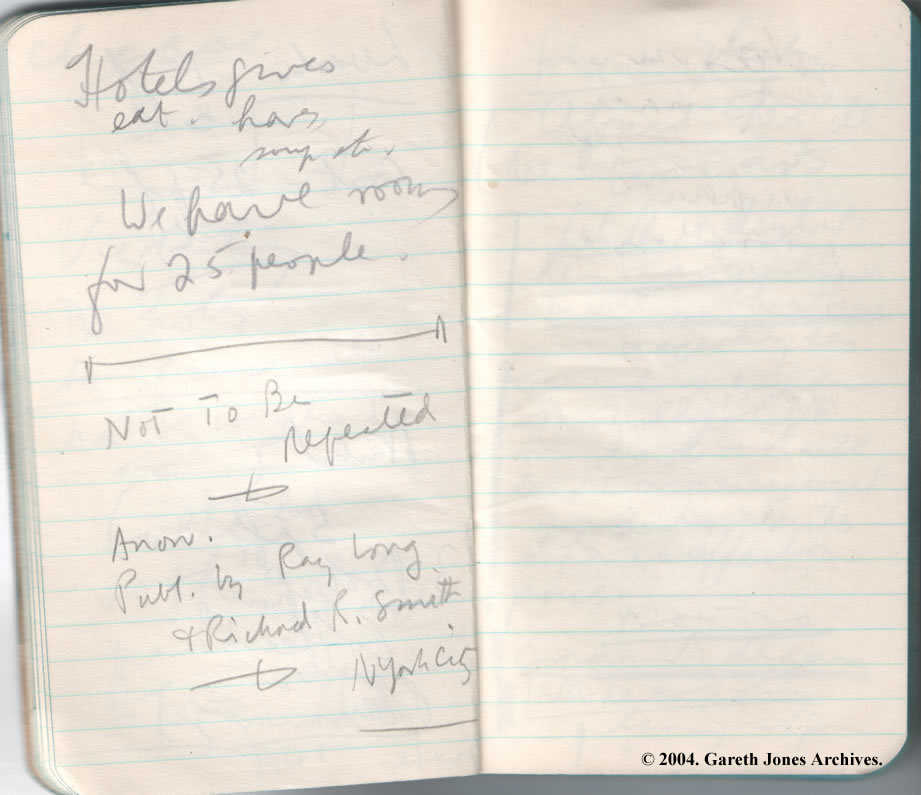 Hotels gives
eat. hars
soup etc.
We have room
for 25 people.
NOT TO BE
Repeated
Anon.
Publ. by Ray Long
& Richard R. Smith.
N York City
© 2004. Gareth Jones Archives.